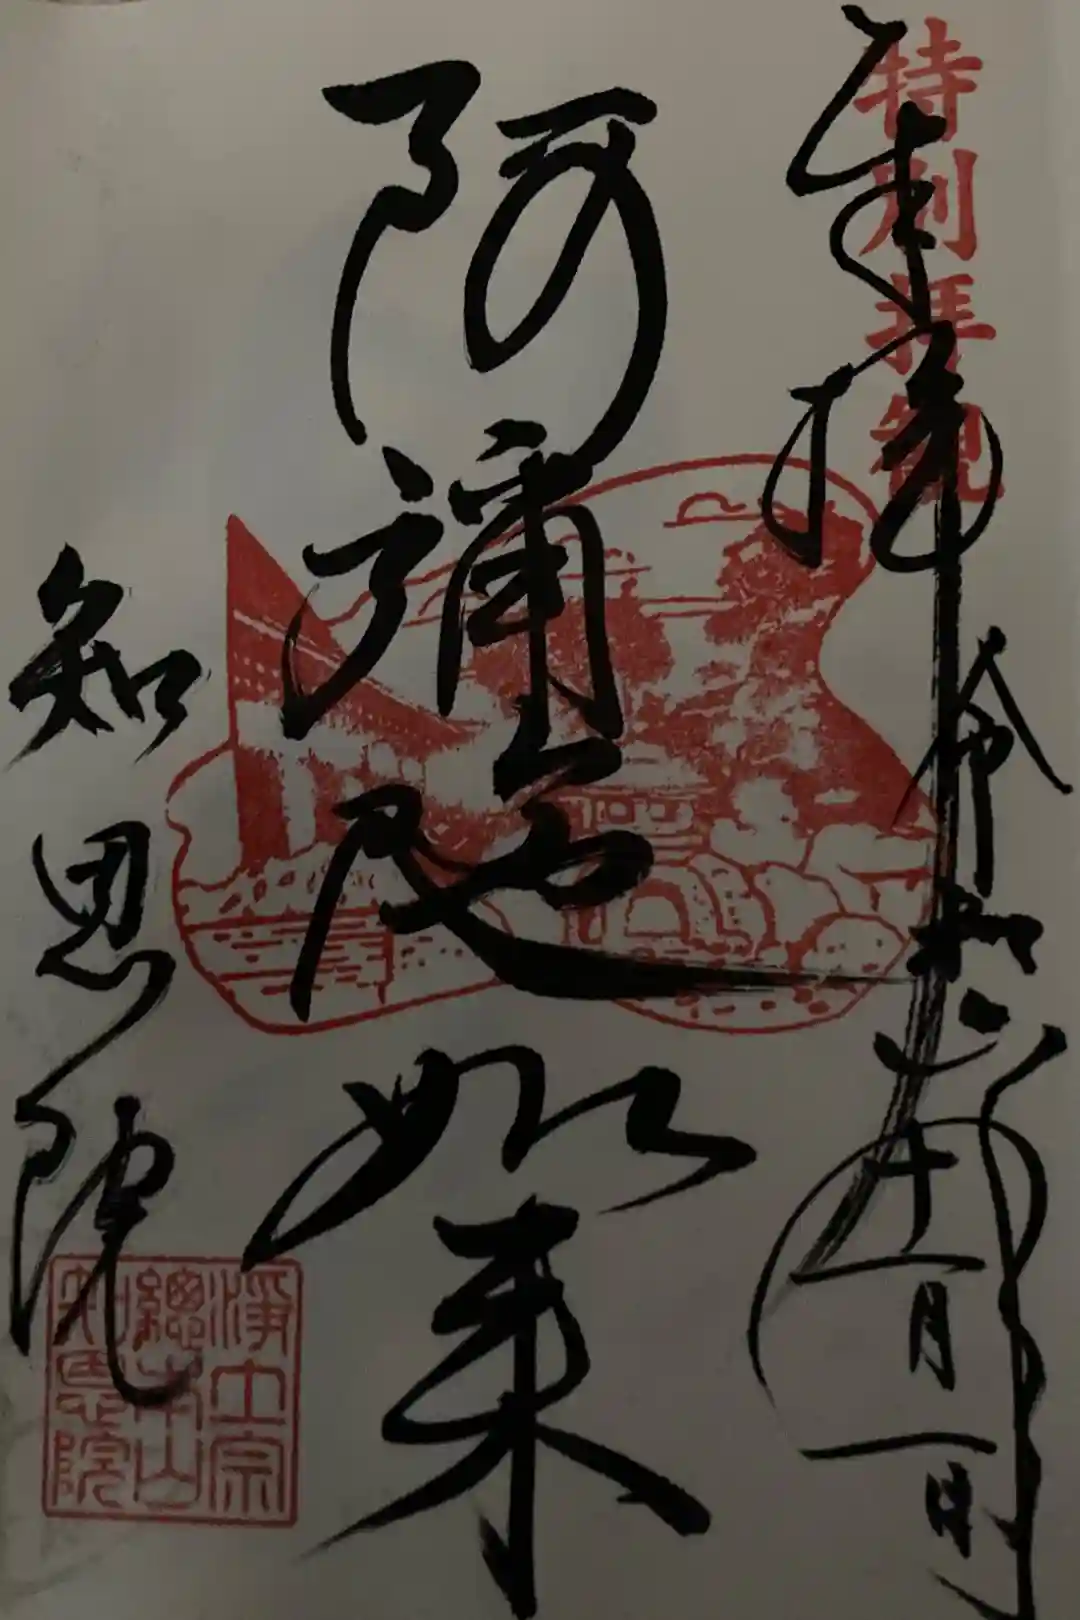 特別拝観
奉拝
令和六年十一月一日
阿彌陀如来
知恩院
淨土宗
總本山
知恩院